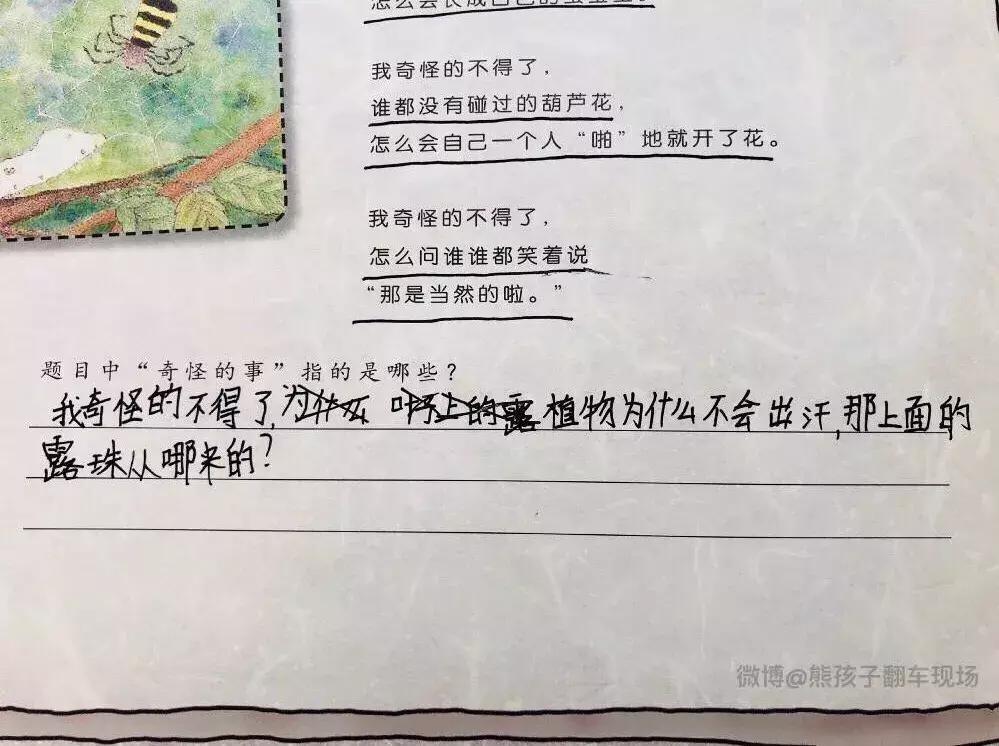 怎么会长成
我奇怪的不得了，
谁都没有碰过的葫芦花，
怎么会自己一个人“啪”地就开了花。
我奇怪的不得了，
怎么问谁谁都笑着说
“那是当然的啦。”
题目中“奇怪的事”指的是哪些？
我奇怪的不得了，为什么 叶子上的露 植物为什么不会出汗，那上面的
露珠从哪来的？
微博@熊孩子翻车现场